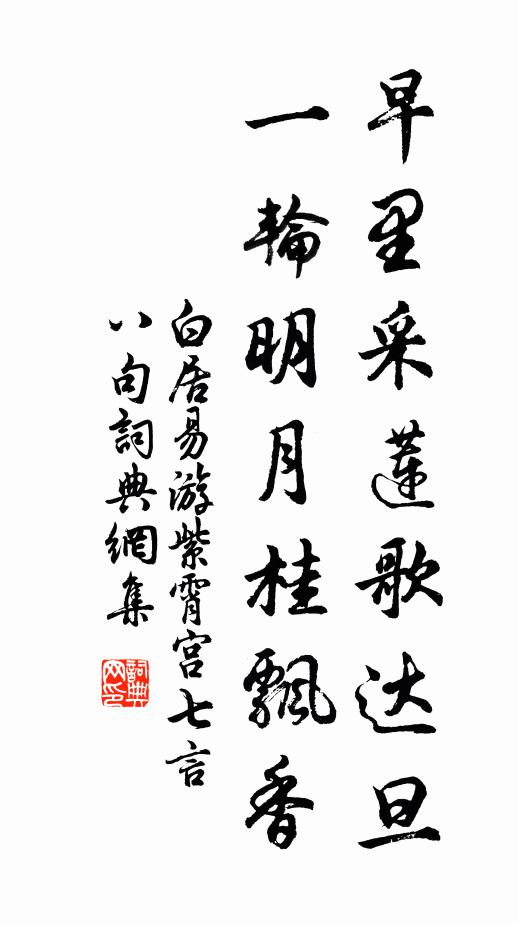 早里采蓮歌达旦
一輪明月桂飄香
白居易游紫霄宫七言
八句詞典網集
詞典网印